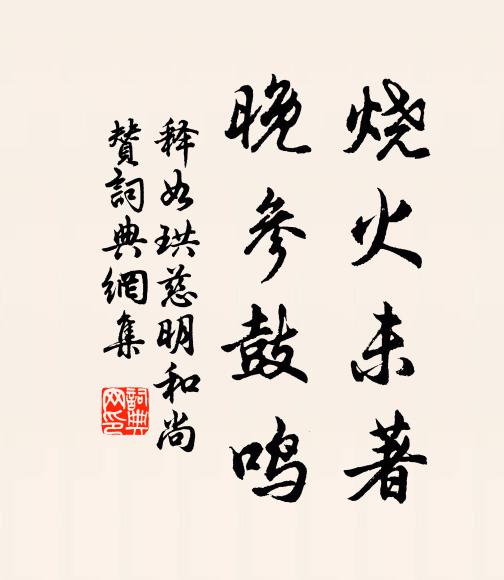 烧火未著
晚参鼓鸣
释如珙慈明和尚
赞词典網集
詞典
网印